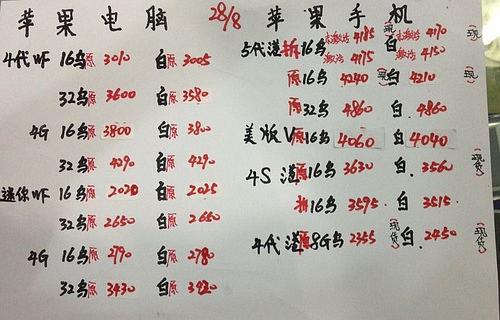 苹果电脑 28/8 苹果手机
4代WF 16乌原 3010 白原 3005
32乌原 3600 白原 3580
4G 16乌原 3800 白原 3800
32乌原 4290 白原 4290
迷你WF 16乌原 2020 白原 2025
32乌原 2650 白原 2660
4G 16乌原 2790 白原 2780
32乌原 3430 白原 3420
5代港拆16乌 未激活 4185 白 未激活 4170 (现)
激活 4175 激活 4150
原16乌 4240 (现) 白 4210 (现)
原32乌 4860 白. 4860
美版V原16乌 4060 白 4040
4S 港原16乌 3630 白. 3560 (现货)
拆16乌 3595. 白. 3515.
4代港原8G乌 2355 (现货) 白. 2450 (现货)